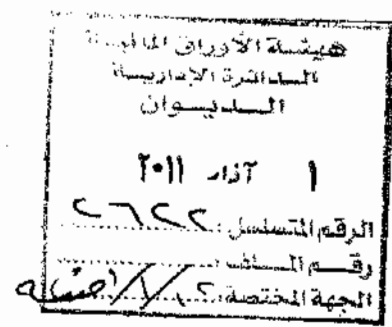 هيئة الأوراق المالية
الدائرة الإدارية
الديوان
١ آذار ٢٠١١
الرقم المتسلسل : ٢٦٢٢
رقم الملف :
الجهة المختصة :